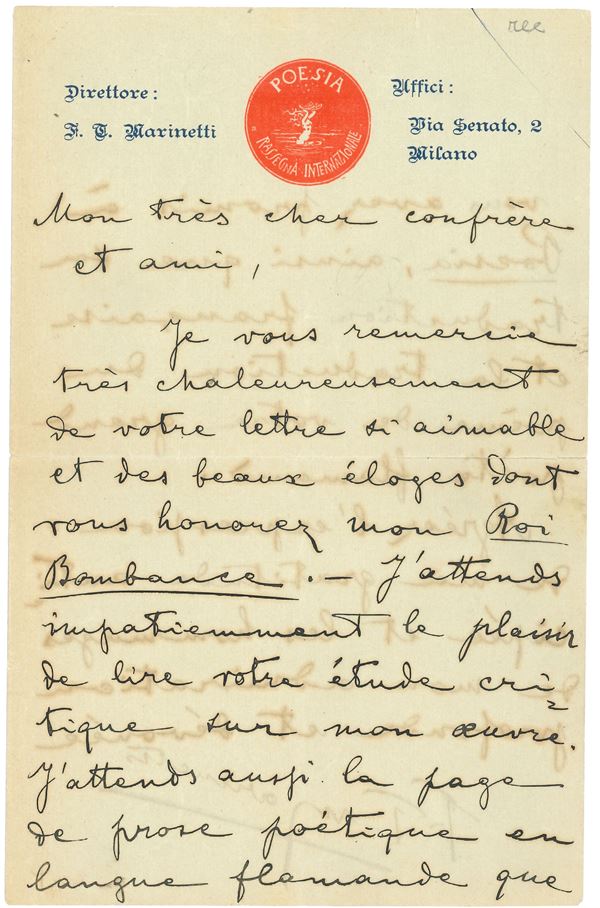 ree
Direttore:
F. T. Marinetti
POESIA
RASSEGNA INTERNAZIONALE
Uffici:
Via Senato, 2
Milano
Mon très cher confrère
et ami,
Je vous remercie
très chaleureusement
de votre lettre si aimable
et des beaux éloges dont
vous honorez mon Roi
Bombance. — J'attends
impatiemment le plaisir
de lire votre étude cri=
tique sur mon œuvre.
J'attends aussi la page
de prose poétique en
langue flamande que